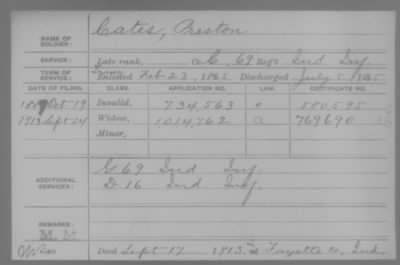 NAME OF SOLDIER: Cates, Preston
SERVICE: Late rank, Co. C, 69 Reg't Ind Inf
TERM OF SERVICE: Enlisted Feb 23, 1865. Discharged July 5 1865
DATE OF FILING. CLASS. APPLICATION NO. LAW. CERTIFICATE NO.
Oct 19 Invalid, 734,563 580,595
1913 Sept 24 Widow, 1014,762 a 769690
Minor,
ADDITIONAL SERVICES: G 69 Ind Inf.
D. 16 Ind. Inf.
REMARKS:
M. M.
Died Sept 17, 1913, Fayette Co, Ind.